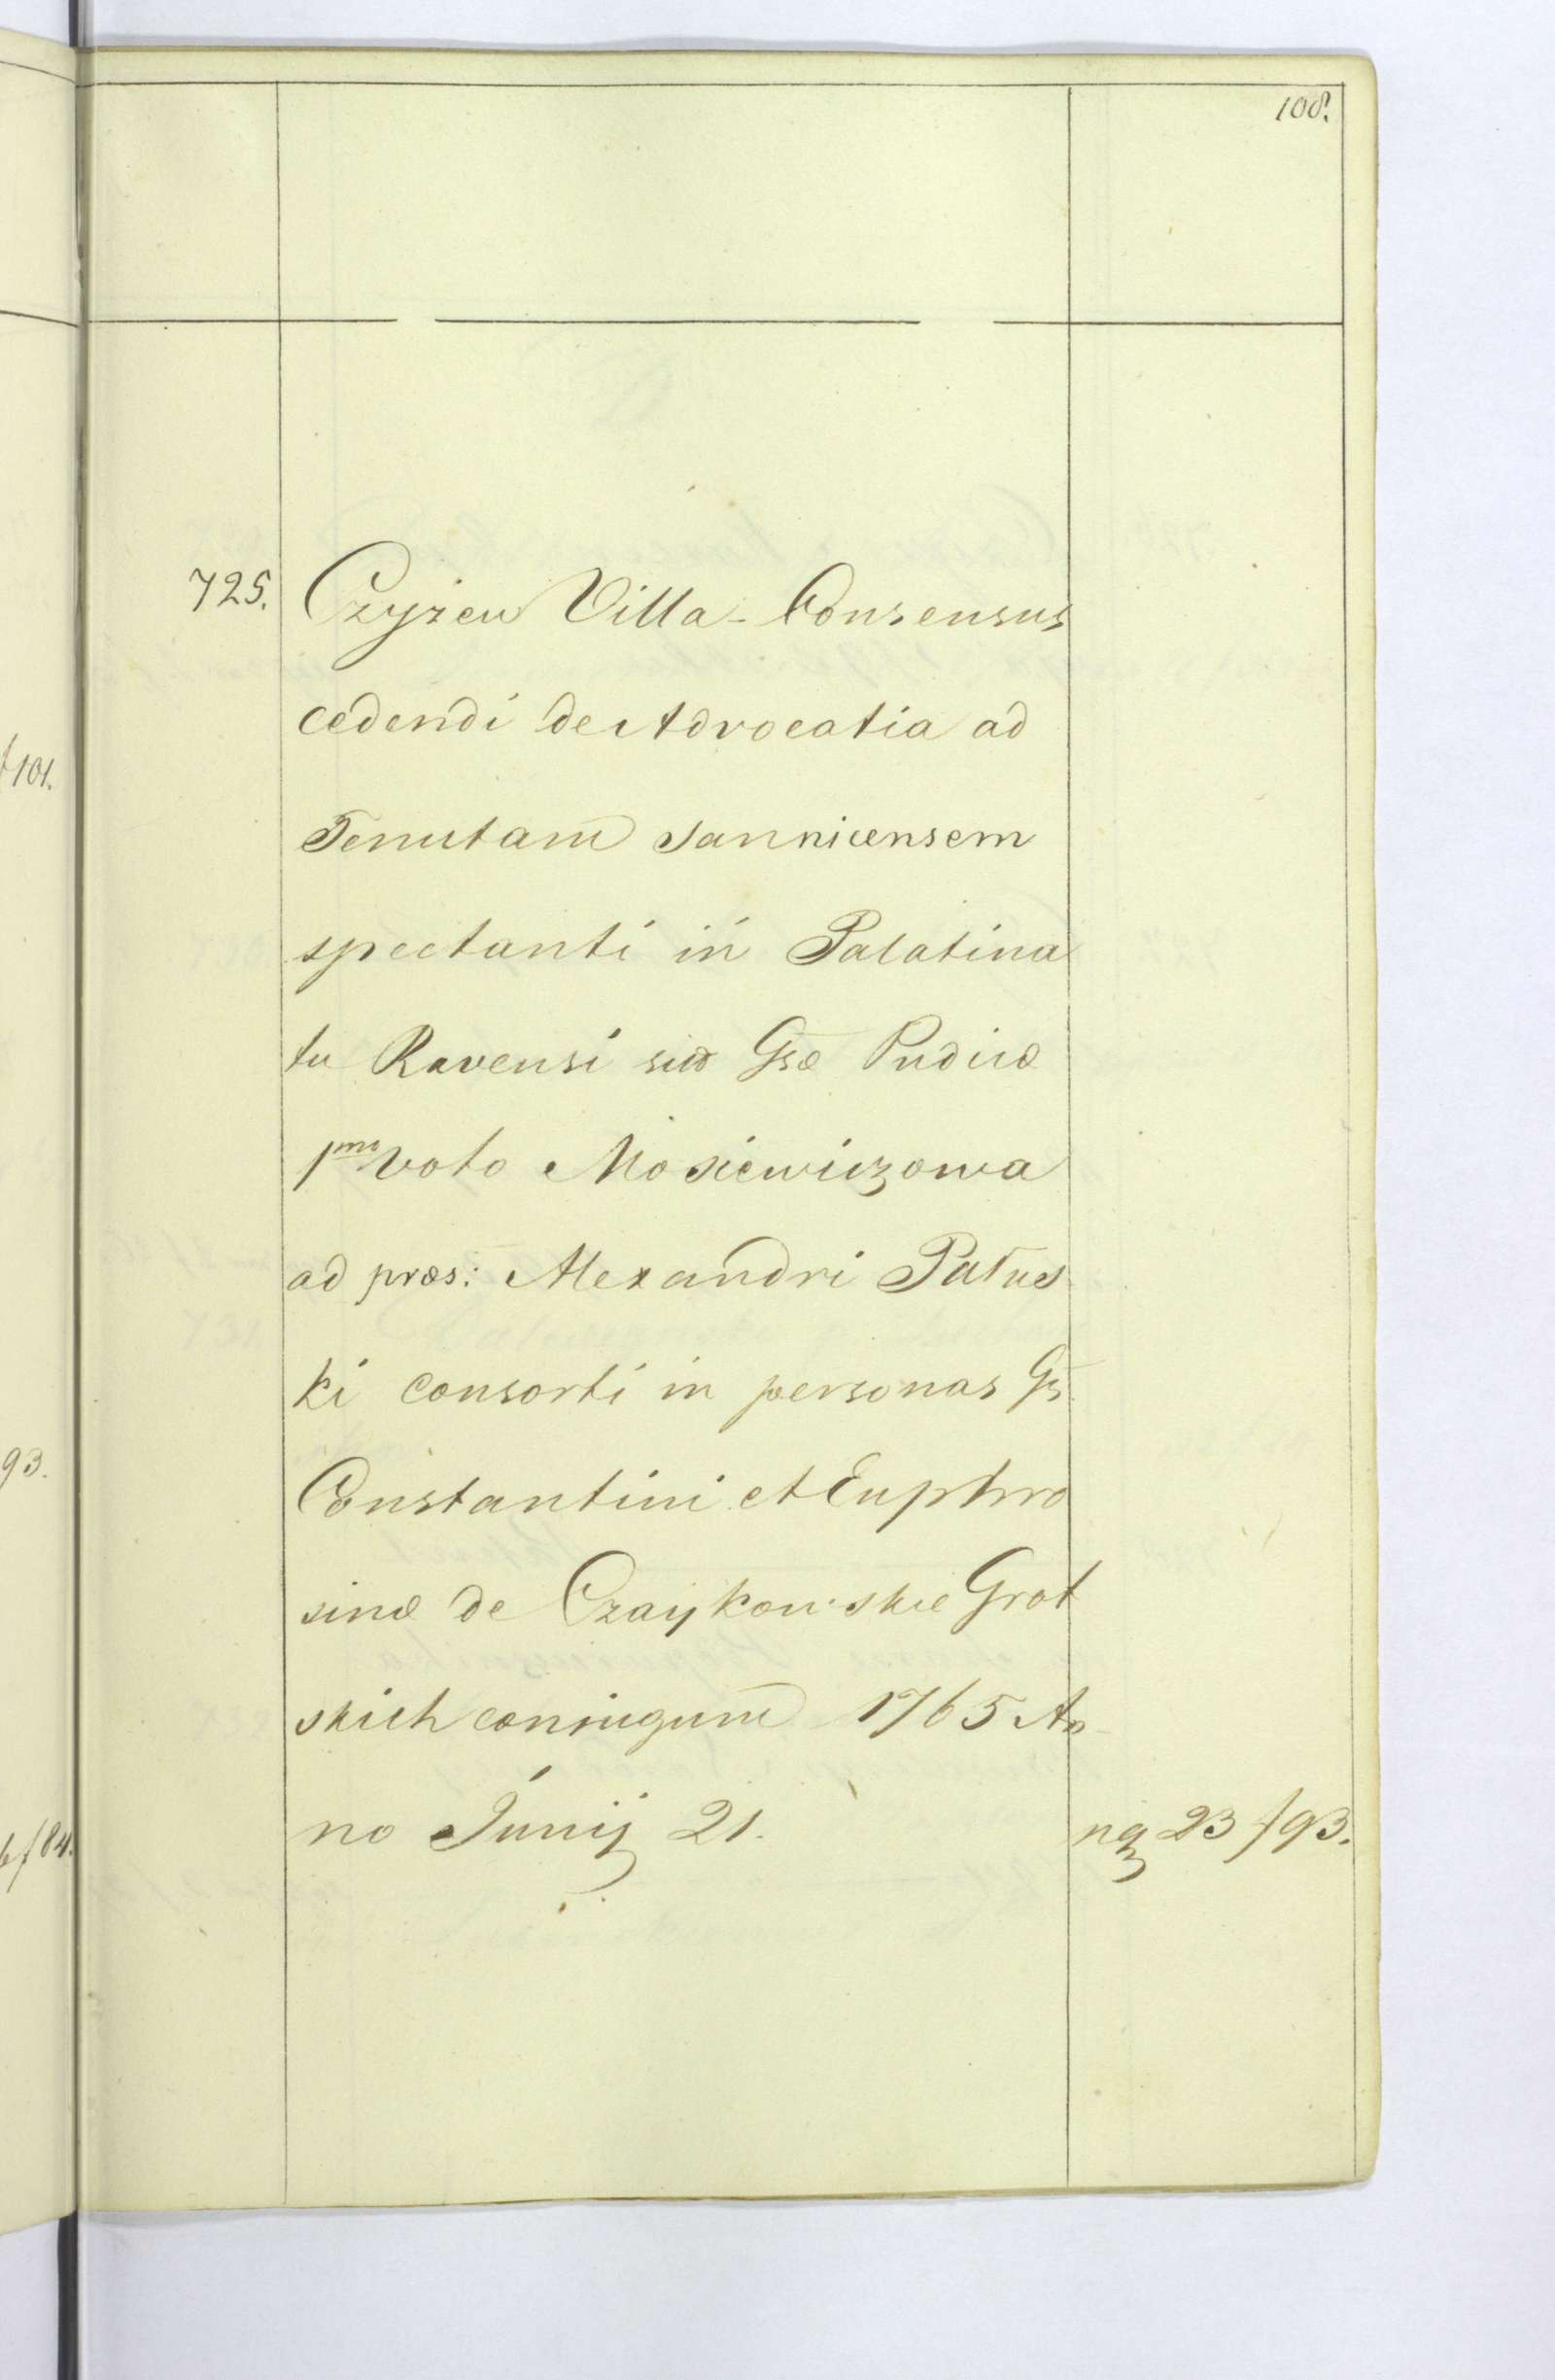 108.
725. Czyżew Villa - Consensus
cedendi de Advocatia ad
Tenutam Sannicensem
spectanti in Palatina
tu Ravensi sitæ Gsæ Pudicæ
1mo voto Mosiewiczowa
ad præs: Alexandri Patus
ki consorti in personas Gs
Constantini et Euphro
sinæ de Czaykowskie Grot
skich coniugum 1765 An
no Junij 21. ng 23 f 93.
f 101.
93.
f 84.